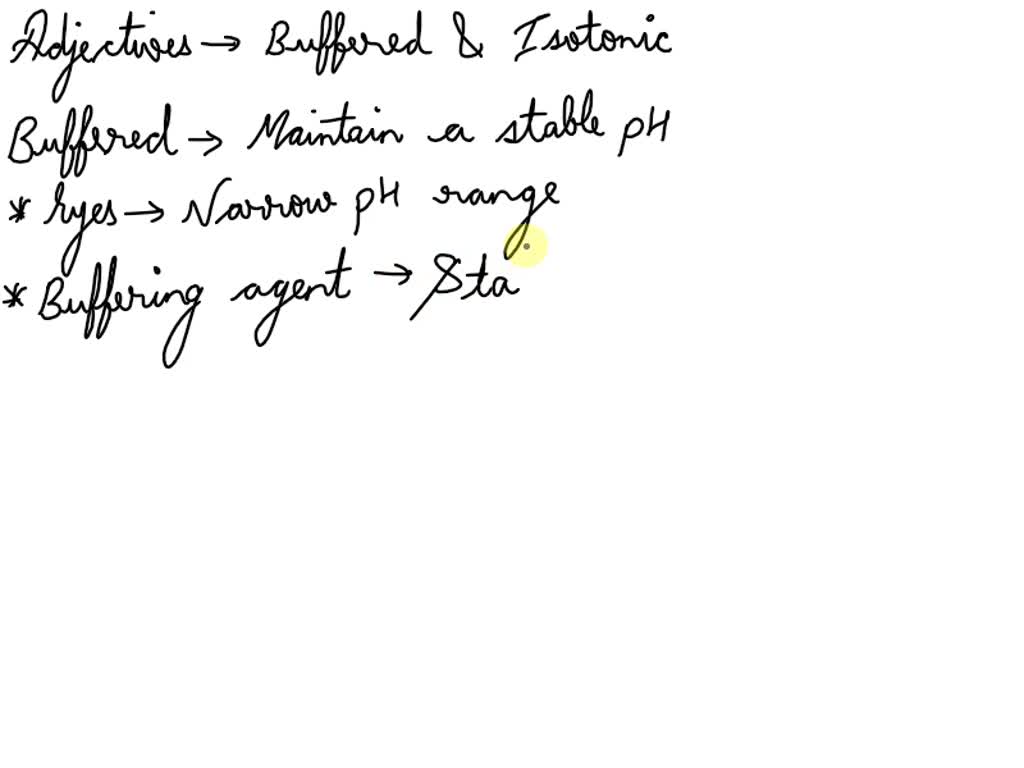 Adjectives → Buffered & Isotonic
Buffered → Maintain a stable pH
* Eyes → Narrow pH range
* Buffering agent → Sta